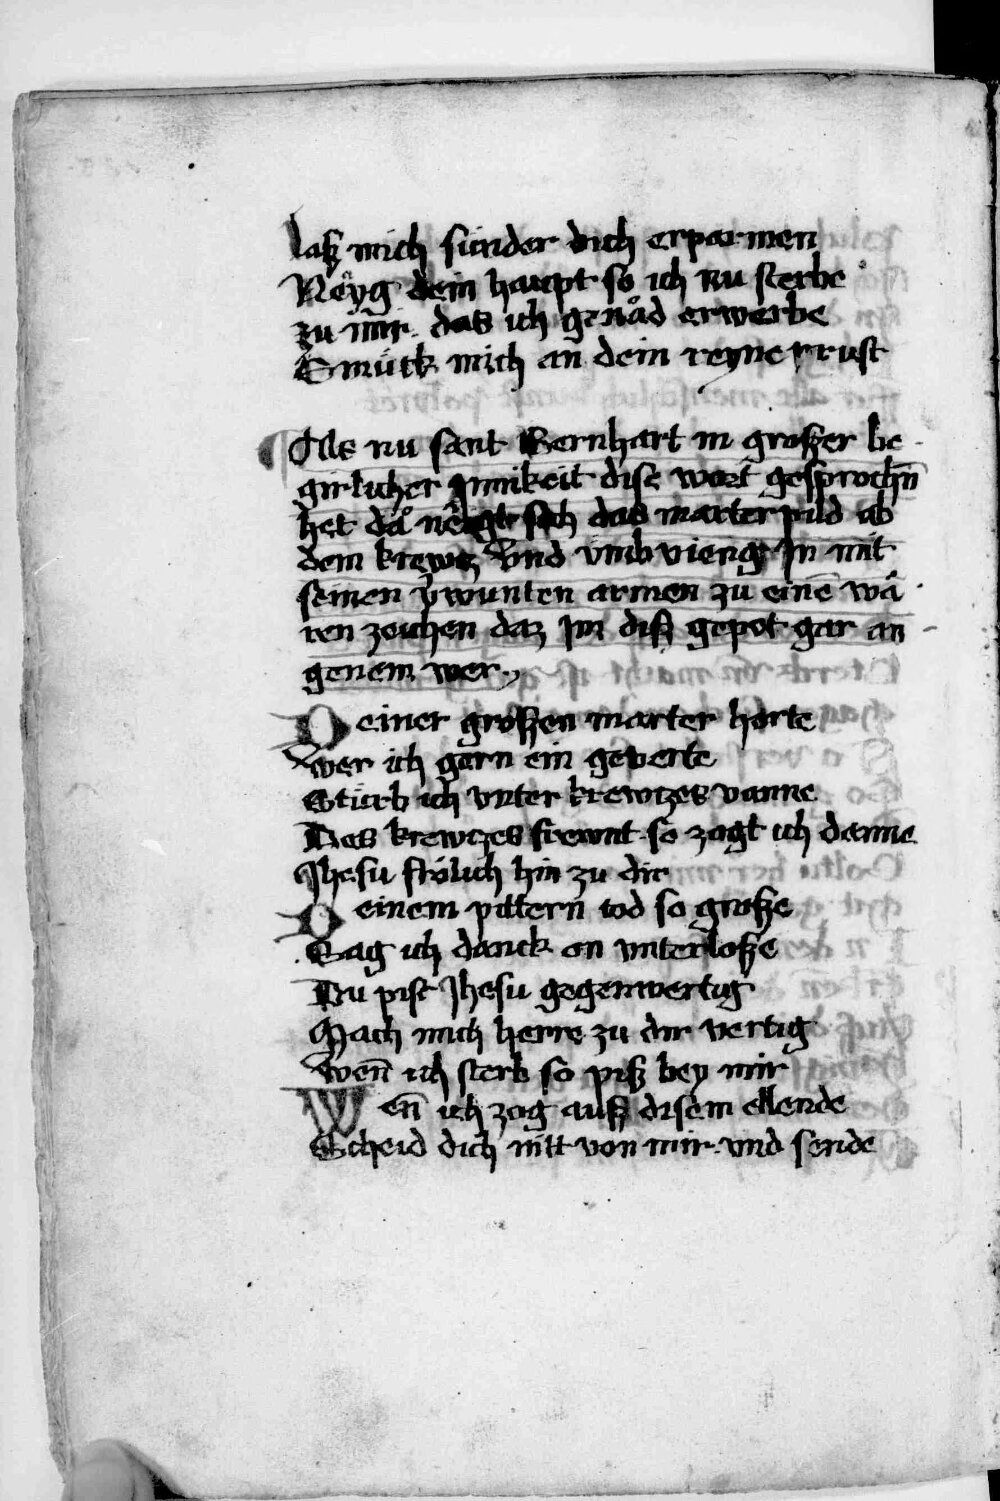 laß mich sünder dich erparmen
Neÿg dein haupt so ich nu sterbe
zu mir das ich genåd erwerbe
Smück mich an dein reyne prust
Als nu sant Bernhart in großer be
girlicher jnnikeit dise wort gesprochn̄
het då neigt sich das marter pild ab
dem krewtz Vnd vmb vieng jn mit
seinen v̄wunten armen zu einē wå
ren zeichen daz jm diß gepot gar an
genem wer
Deiner großen marter horte
wer ich gern ein geverte
Stürb ich vnter krewtzes vanne
Des krewtzes frewnt so zogt ich danne
Jhesu frölich hin zu dir
Deinem pittern tod so große
Sag ich danck on vnterloße
Du pist Jhesu gegenwertig
Mach mich herre zu dir vertig
wen̄ ich sterb so piß bey mir
Wen̄ ich zog auß disem ellende
Scheid dich nitt von mir vnd sende